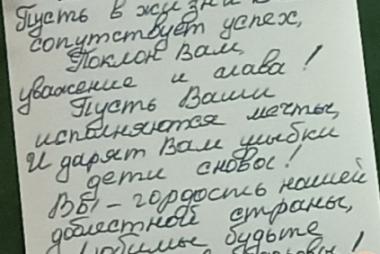 Пусть в жизни
сопутствует успех,
Поклон Вам,
уважение и слава!
Пусть Ваши
исполняются мечты,
И дарят Вам улыбки
дети снова!
ВЫ - гордость нашей
доблестной страны,
Любимы будьте